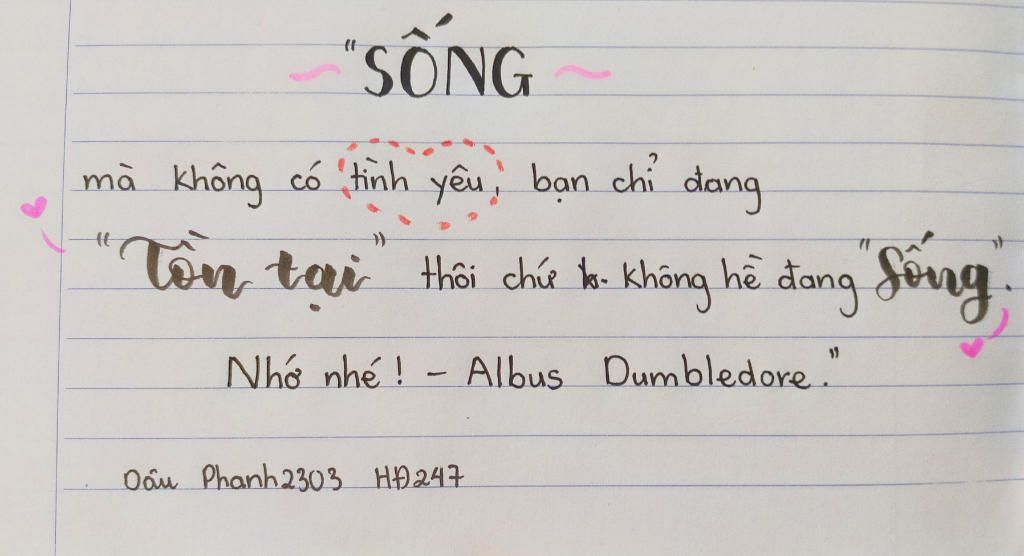 "SỐNG
mà không có tình yêu, bạn chỉ đang
"Tồn tại" thôi chứ k. không hề đang "Sống".
Nhớ nhé! - Albus Dumbledore."
Dâu Phanh2303 HĐ247